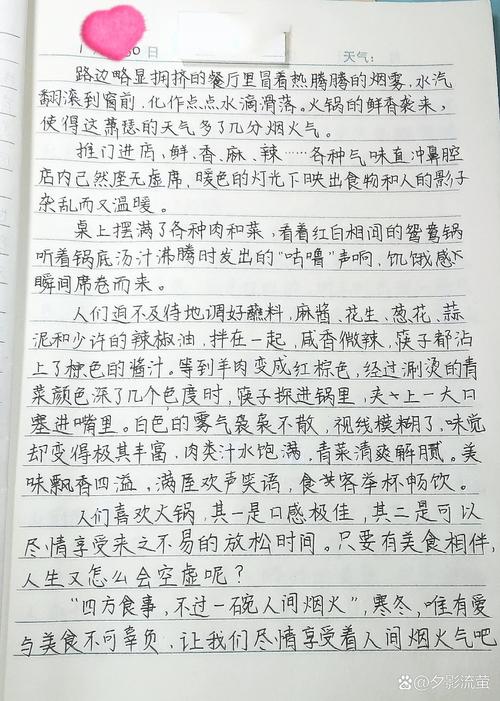 日
天气:
路边略显拥挤的餐厅里冒着热腾腾的烟雾,水汽
翻滚到窗前,化作点点水滴滑落。火锅的鲜香袭来,
使得这萧瑟的天气多了几分烟火气。
推门进店,鲜、香、麻、辣……各种气味直冲鼻腔
店内已然座无虚席,暖色的灯光下映出食物和人的影子
杂乱而又温暖。
桌上摆满了各种肉和菜,看着红白相间的鸳鸯锅
听着锅底汤汁沸腾时发出的"咕噜"声响,饥饿感下
瞬间席卷而来。
人们迫不及待地调好蘸料,麻酱、花生、葱花、蒜
泥和少许的辣椒油,拌在一起,咸香微辣,筷子都沾
上了棕色的酱汁。等到羊肉变成红棕色,经过涮烫的青
菜颜色深了几个色度时,筷子探进锅里,夹上一大口
塞进嘴里。白色的雾气袅袅不散,视线模糊了,味觉
却变得极其丰富,肉类汁水饱满,青菜清爽解腻。美
味飘香四溢,满屋欢声笑语,食客举杯畅饮。
人们喜欢火锅,其一是口感极佳,其二是可以
尽情享受来之不易的放松时间。只要有美食相伴,
人生又怎么会空虚呢?
"四方食事,不过一碗人间烟火",寒冬,唯有爱
与美食不可辜负,让我们尽情享受着人间烟火气吧
@夕影流萤